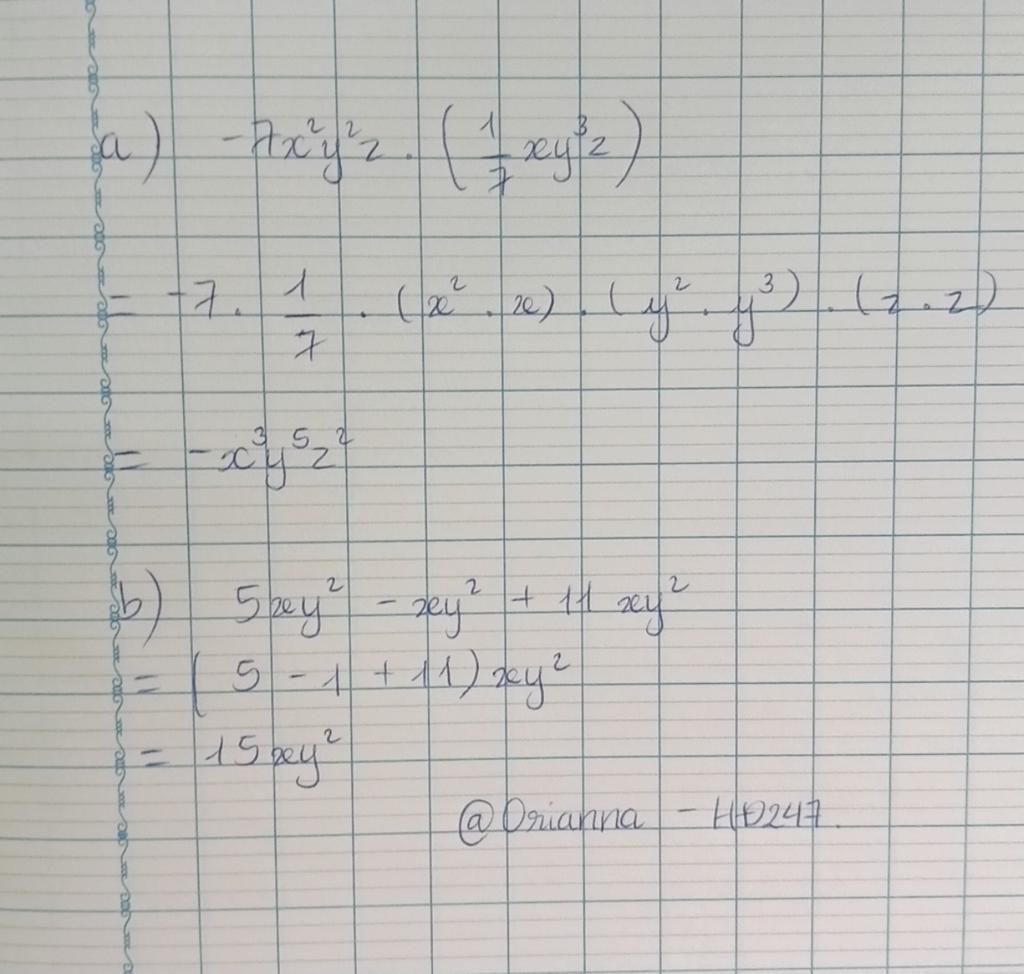 a) -7x²y²z . (1/7 xy³z)
= -7 . 1/7 . (x² . x) . (y² . y³) . (z . z)
= -x³y⁵z²
b) 5xy² - xy² + 11 xy²
= (5 - 1 + 11) xy²
= 15xy²
@Orianna - HD247.